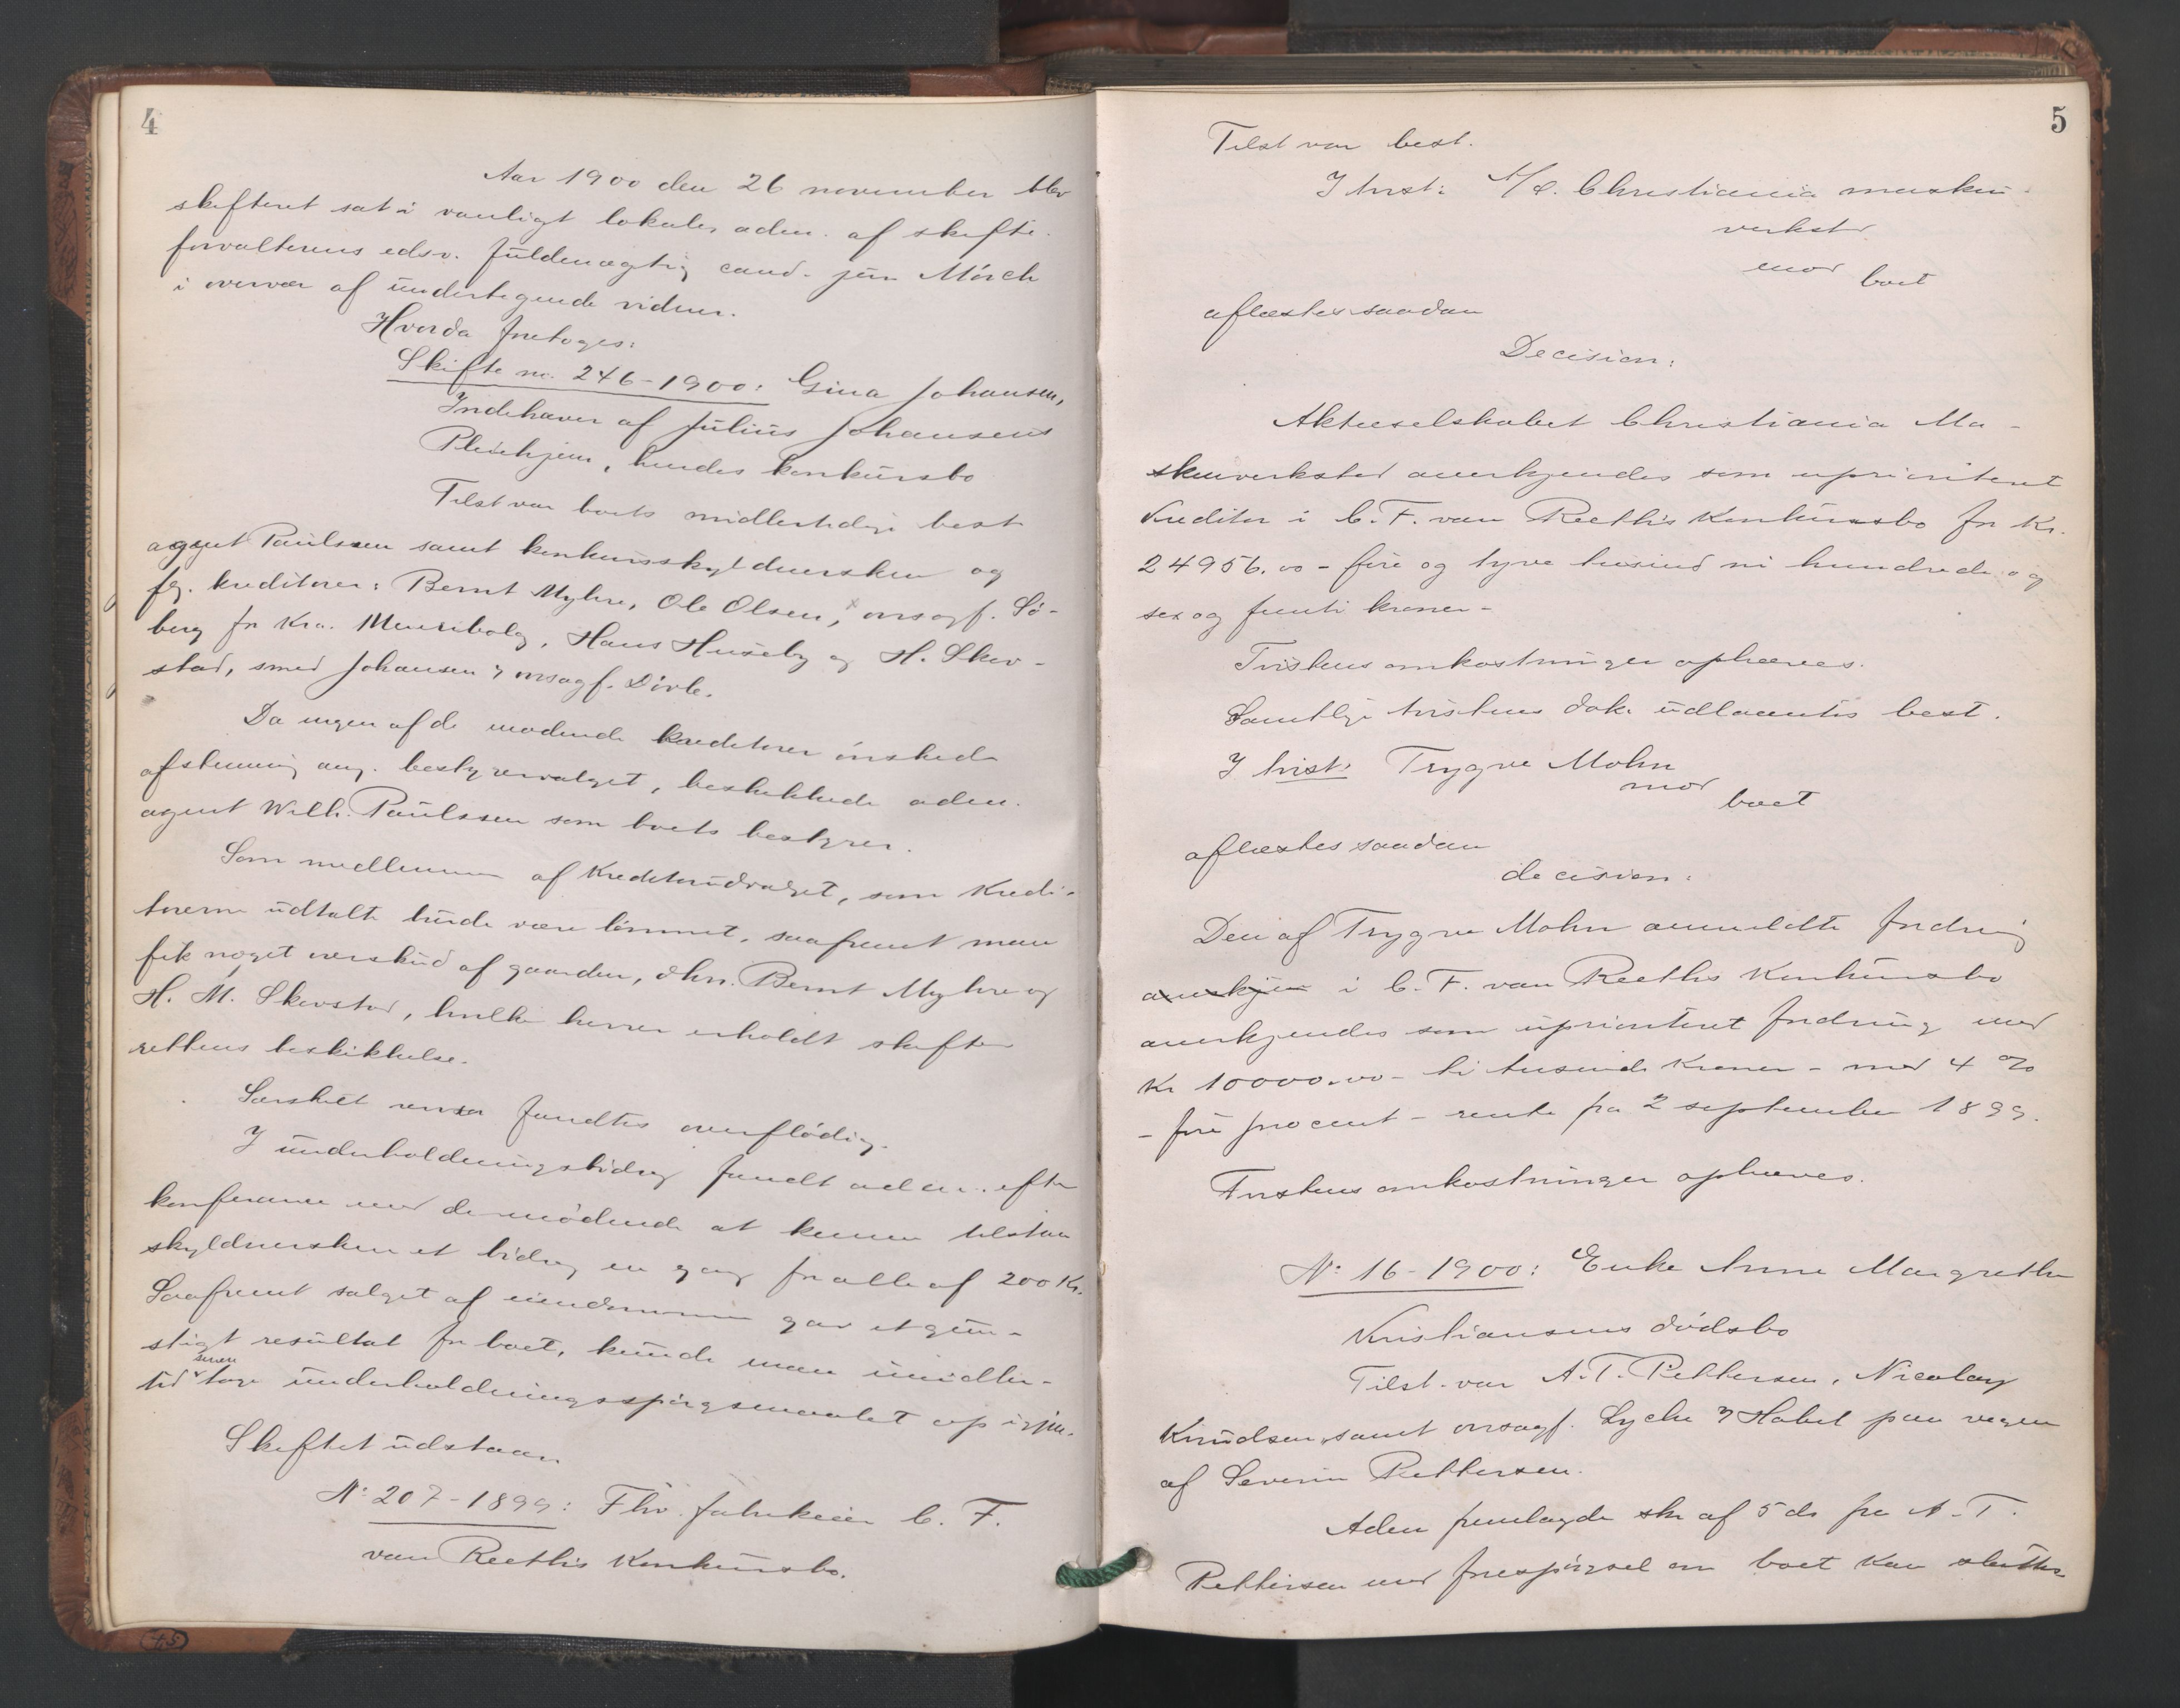 4
Aar 1900 den 26 november blev
skifteret sat i vanligt lokale, adm. af skifte-
forvalterens edsv. fuldmægtig cand. jur Mörch
i overvær af undertegnede vidner.
Hvorda foretoges:
Skifte no. 246-1900: Gina Johansen,
Indehaver af Julius Johansens
Pleiehjem, hendes konkursbo
Tilst var boets midlertidige best
agent Paulssen samt konkursskyldnersken og
flg. kreditorer: Bernt Myhre, Ole Olsen, x orsagf. Sö-
berg for Kra. Meieribolag, Hans Huseby og H. Skov-
stad, smed Johansen & orsagf. Dövle.
Da ingen af de mødende kreditorer ønskede
afstemning ang. bestyrervalget, beskikkede adm.
agent Wilh. Paulssen som boets bestyrer.
Som medlemmer af Kreditorudvalget, som Kredi-
torerne udtalte burde være lønnet, saafremt man
fik noget overskud af gaarden, dhrr. Bernt Myhre og
H. M. Skovstad, hvilke herrer erholdt skifte-
rettens beskikkelse.
Særskilt revisor fandtes overflödig.
I underholdningsbidrag fandt adm. efter
konferance med de mødende at kunne tilstaa
skyldnersken et bidrag en gang for alle af 200 Kr.
Saafremt salget af eiendommen gav et gun-
stigt resultat for boet, kunde man imidler-
tid senere tage underholdningsspörgsmaalet op igjen.
Skiftet udstaar.
No 207-1899: Fhv. fabrikeier C. F.
van Reeth's Konkursbo.
5
Tilst var best.
I tvist: A/S. Christiania maskin-
verksted
mod
boet
aflæstes saadan
Decision:
Aktieselskabet Christiania Ma-
skinverksted anerkjendes som uprioriteret
Kreditor i C. F. van Reeth's Konkursbo for Kr.
24956.00 - fire og tyve tusind ni hundrede og
sex og femti kroner -
Tvistens omkostninger ophæves.
Samtlige tvistens dok. udlaantes best.
I tvist: Trygve Mohn
mod
boet
aflæstes saadan
decision:
Den af Trygve Mohn anmeldte fordring
anerkjen i C. F. van Reeths Konkursbo
anerkjendes som uprioriteret fordring med
Kr 10000.00 - ti tusinde Kroner - med 4 %
- fire procent - rente fra 2 september 1899.
Tvistens omkostninger ophæves.
No 16-1900: Enke Anne Margrethe
Kristiansens dødsbo
Tilst. var A. T. Pettersen, Nicolay
Knudsen, samt orsagf. Lyche & Habel paa vegne
af Severin Pettersen.
Adm fremlagde skr af 5 ds fra A. T.
Pettersen med forespörgsel om boet kan sluttes